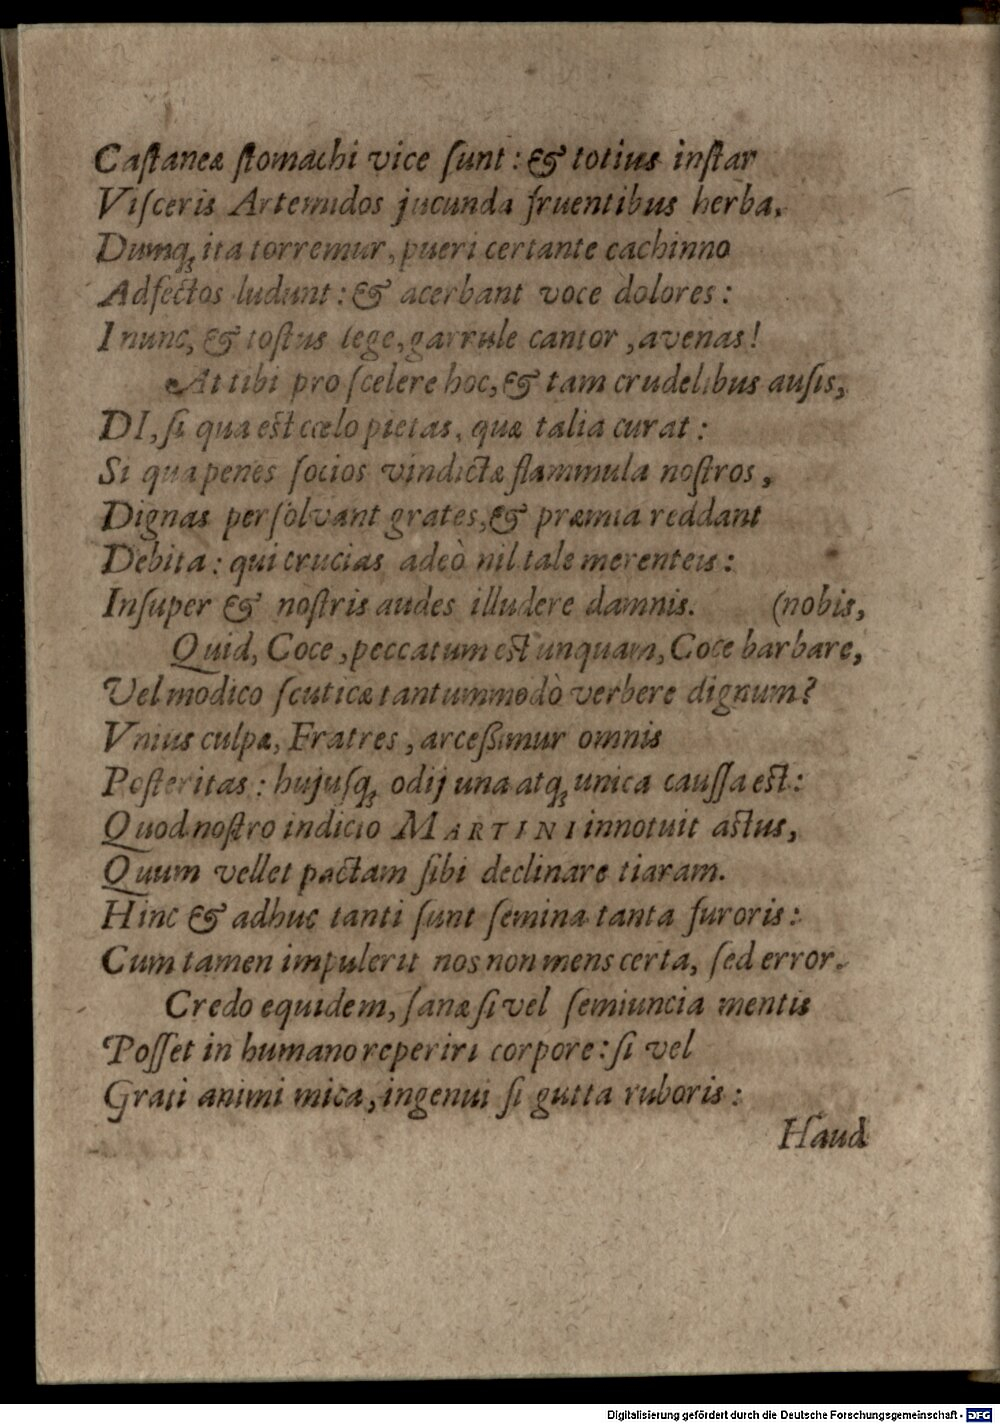 Caſtaneæ ſtomachi vice ſunt: & totius inſtar
Viſceris Artemidos jucunda fruentibus herba.
Dumq́; ita torremur, pueri certante cachinno
Adfectos ludunt: & acerbant voce dolores:
I nunc, & toſtus lege, garrule cantor, avenas!
At tibi pro ſcelere hoc, & tam crudelibus auſis,
DI, ſi qua est cœlo pietas, quæ talia curat:
Si qua penes ſocios vindictæ flammula noſtros,
Dignas perſolvant grates, & præmia reddant
Debita: qui crucias adeò nil tale merenteis:
Inſuper & noſtris audes illudere damnis. (nobis,
Quid, Coce, peccatum est unquam, Coce barbare,
Vel modico ſcuticæ tantummodò verbere dignum?
Vnius culpa, Fratres, arceßimur omnis
Poſteritas: hujuſq; odij una atq; unica cauſſa est:
Quod noſtro indicio MARTINI innotuit aſtus,
Quum vellet pactam ſibi declinare tiaram.
Hinc & adhuc tanti ſunt ſemina tanta furoris:
Cum tamen impulerit nos non mens certa, ſed error.
Credo equidem, ſanæ ſi vel ſemiuncia mentis
Poſſet in humano reperiri corpore: ſi vel
Grati animi mica, ingenui ſi gutta ruboris:
Haud
Digitalisierung gefördert durch die Deutsche Forschungsgemeinschaft - DFG